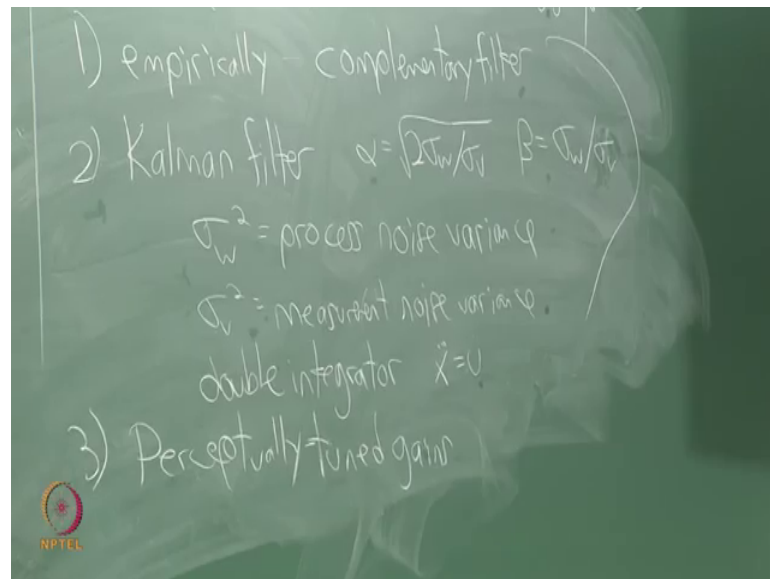 1) empirically - complementary filter
2) Kalman filter α=√2σw/σv β=σw/σv
σw² = process noise variance
σv² = measurement noise variance
double integrator ẍ=u
3) Perceptually-tuned gains
NPTEL